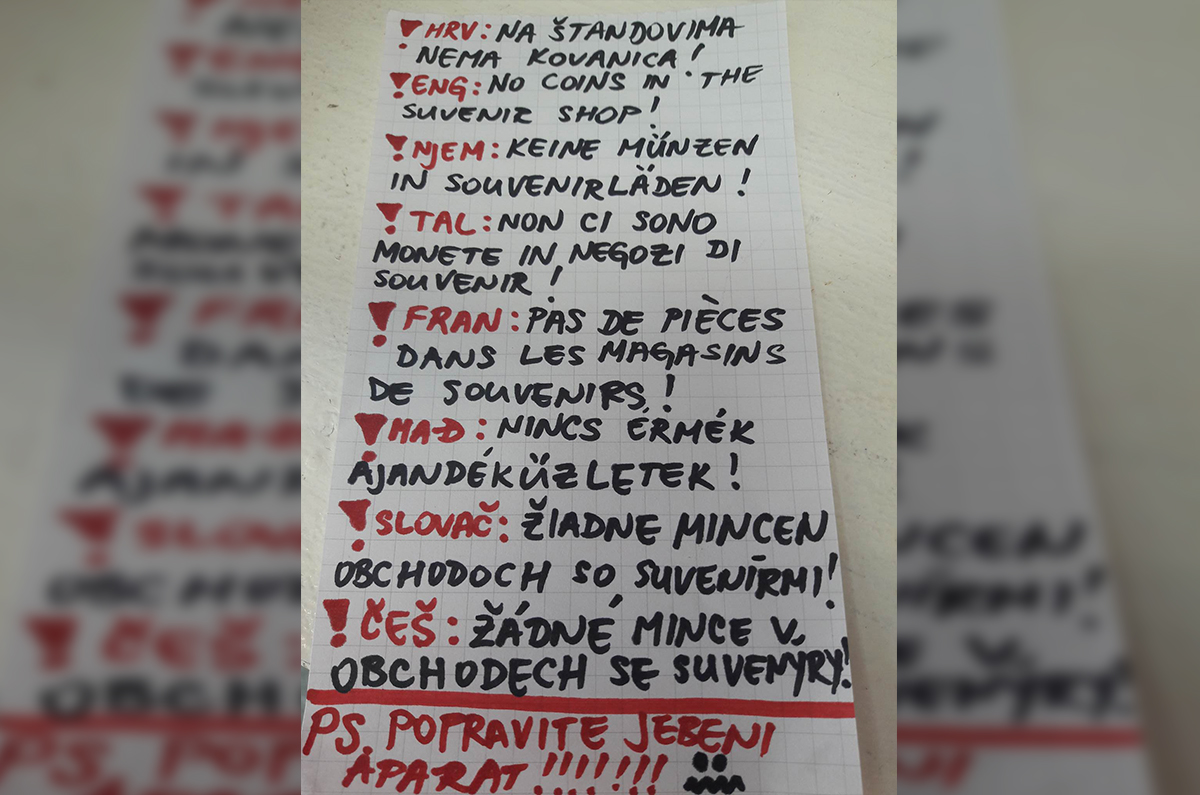 ! HRV: NA ŠTANDOVIMA
NEMA KOVANICA!
! ENG: NO COINS IN THE
SUVENIR SHOP!
! NJEM: KEINE MÜNZEN
IN SOUVENIRLÄDEN!
! TAL: NON CI SONO
MONETE IN NEGOZI DI
SOUVENIR!
! FRAN: PAS DE PIÈCES
DANS LES MAGASINS
DE SOUVENIRS!
! MAĐ: NINCS ÉRMÉK
AJANDÉKÜZLETEK!
! SLOVAČ: ŽIADNE MINCEN
OBCHODOCH SO SUVENÍRMI!
! ČEŠ: ŽÁDNÉ MINCE V
OBCHODECH SE SUVENYRY!
PS. POPRAVITE JEBENI
APARAT!!!!!!!